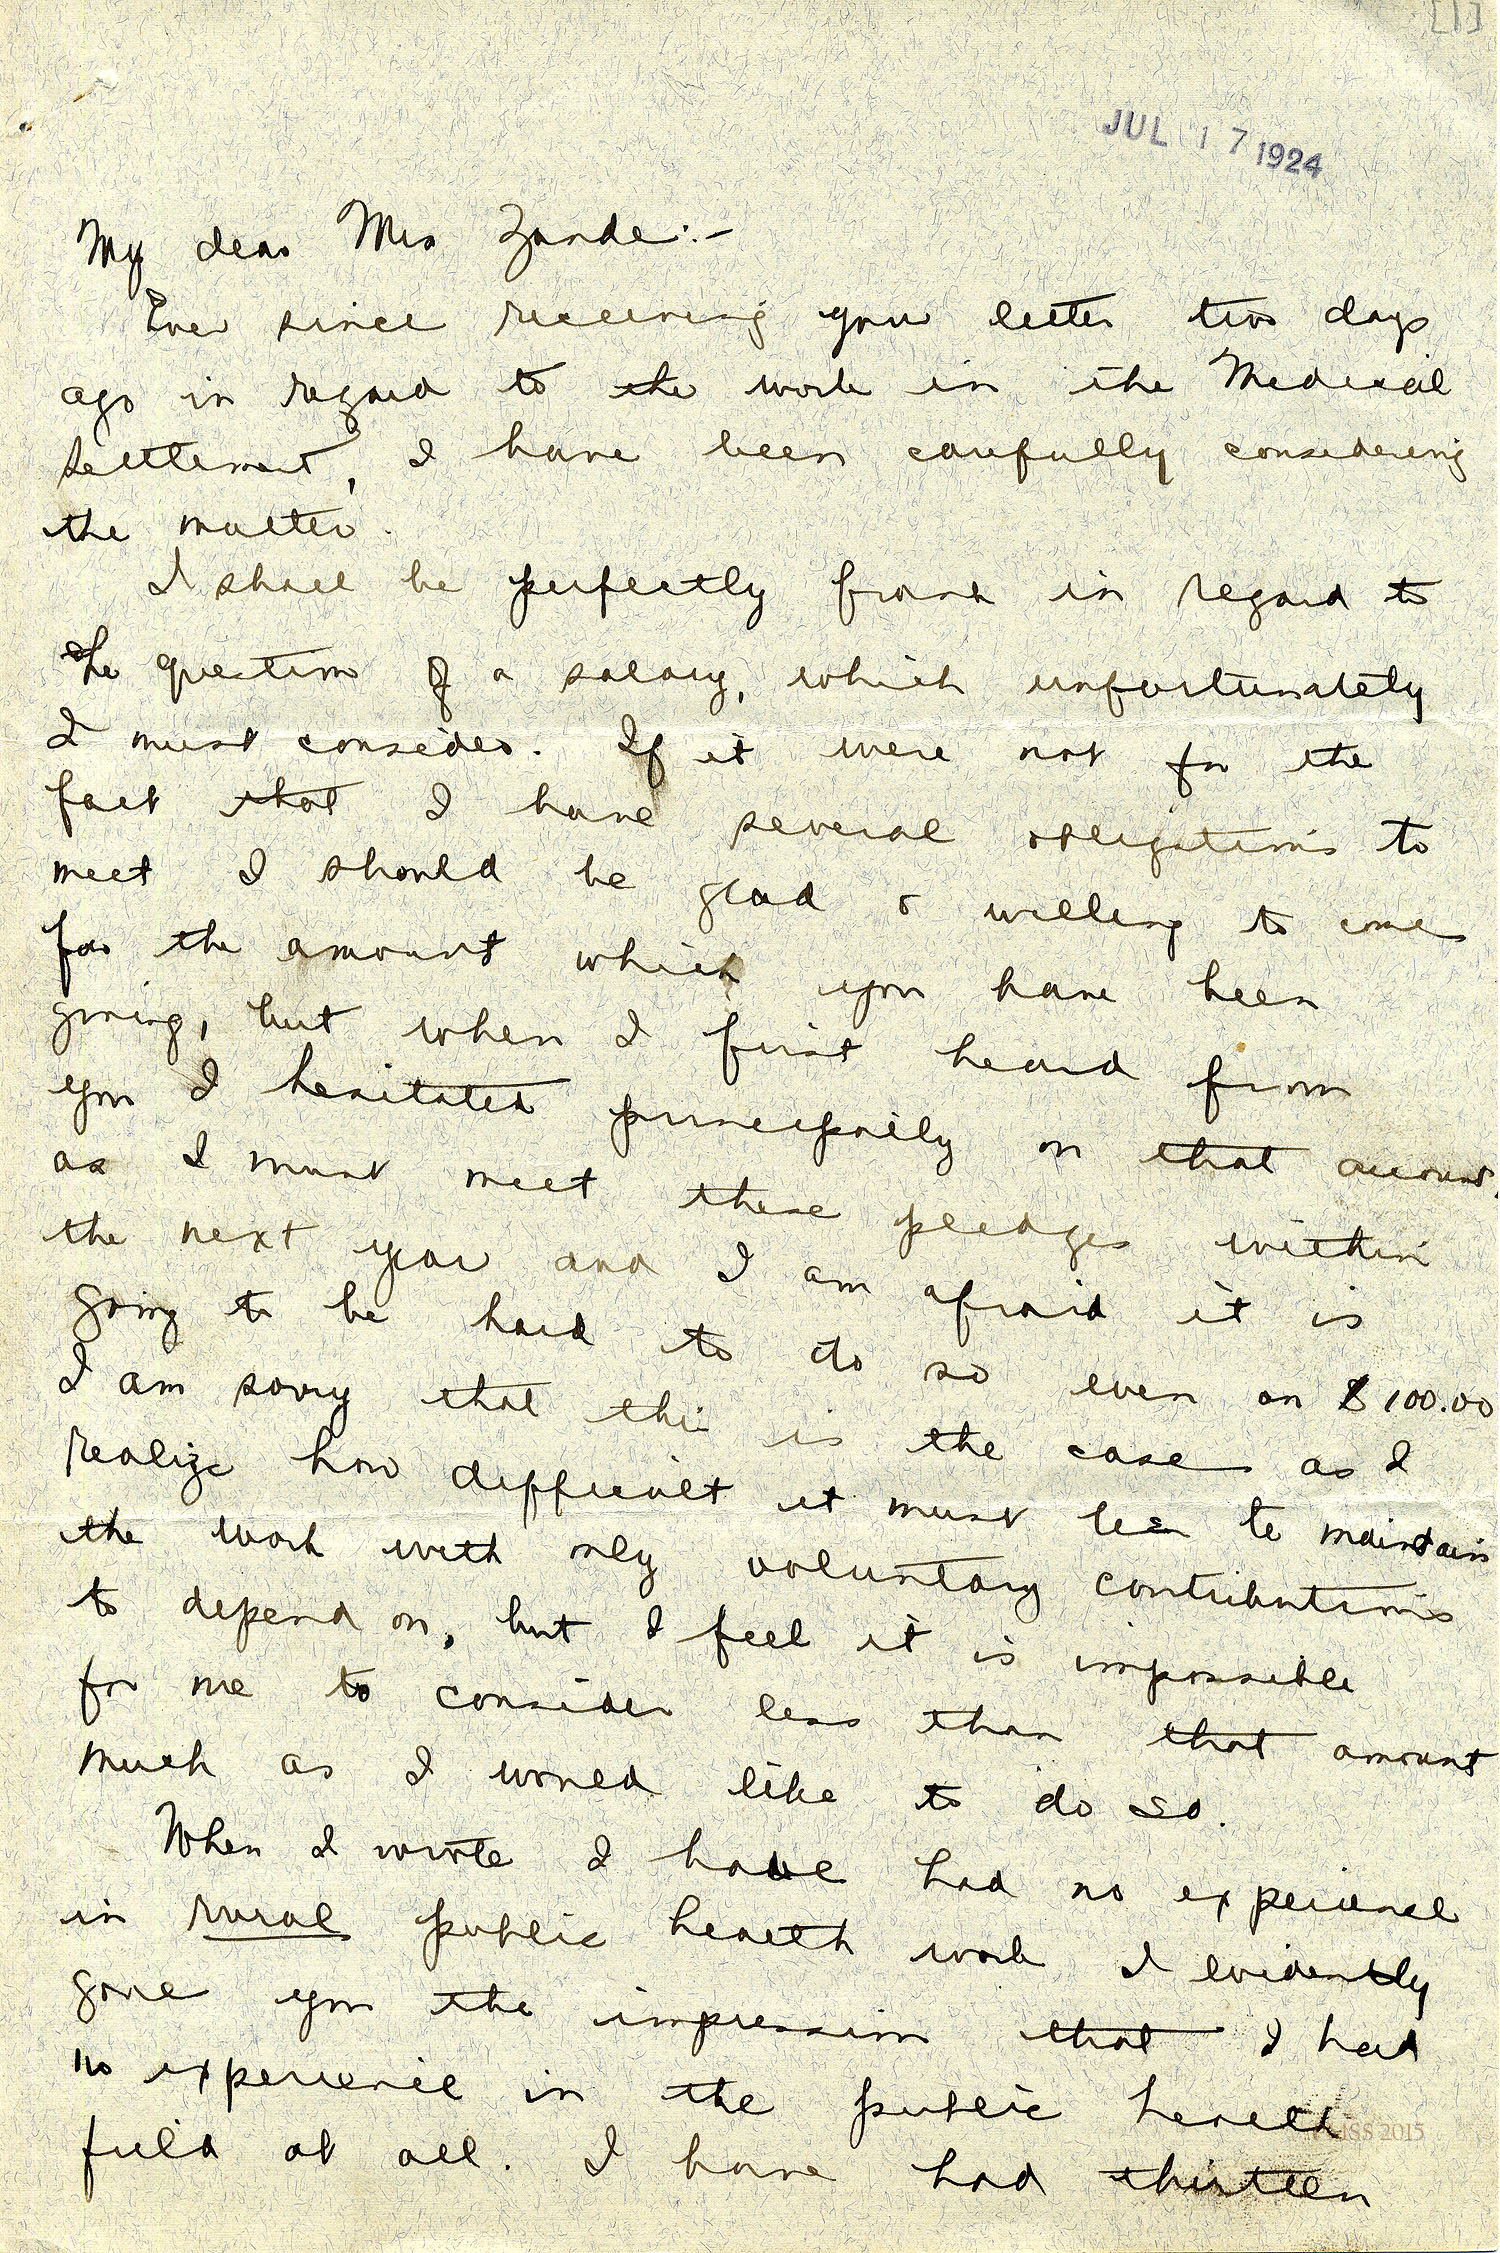 [1]
JUL 17 1924
My dear Mrs Zande:-
Ever since receiving your letter two days
ago in regard to the work in the Medical
Settlement, I have been carefully considering
the matter.
I shall be perfectly frank in regard to
the question of a salary, which unfortunately
I must consider. If it were not for the
fact that I have several obligations to
meet I should be glad & willing to come
for the amount which you have been
giving, but when I first heard from
you I hesitated principally on that account,
as I must meet these pledges within
the next year and I am afraid it is
going to be hard to do so even on $100.00
I am sorry that this is the case as I
realize how difficult it must be to maintain
the work with only voluntary contributions
to depend on, but I feel it is impossible
for me to consider less than that amount
much as I would like to do so.
When I wrote I have had no experience
in rural public health work I evidently
gave you the impression that I had
no experience in the public health
field at all. I have had thirteen
PMSS 2015